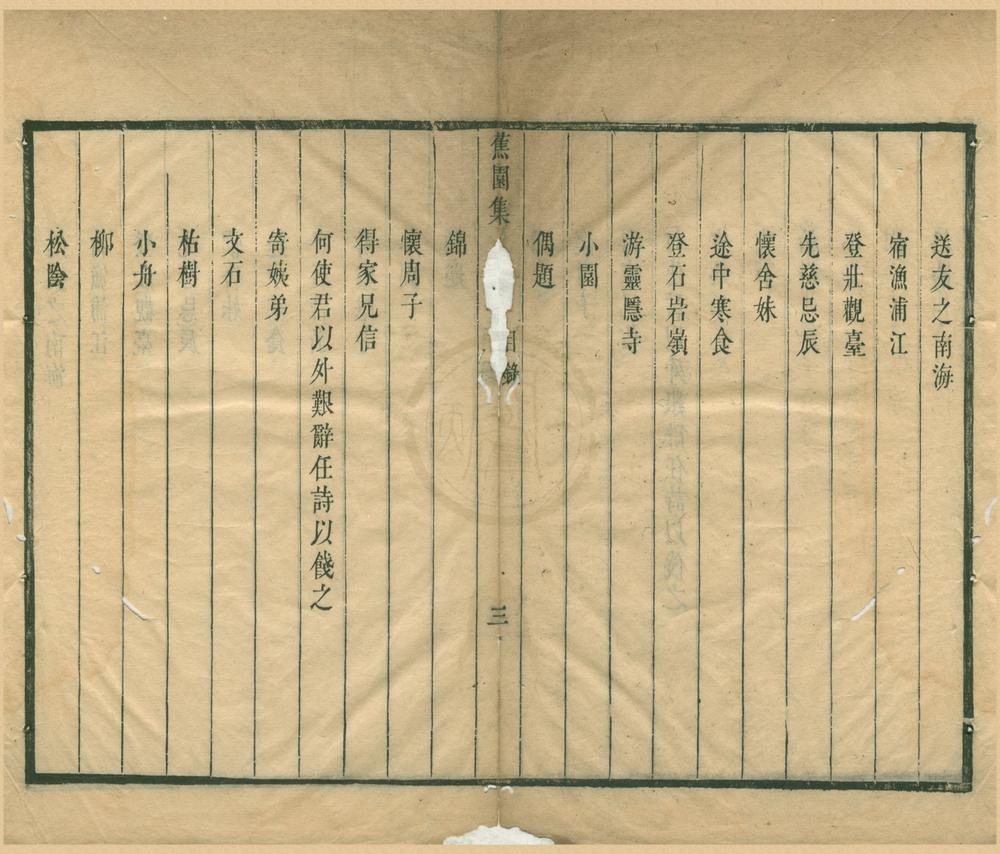 送友之南海
宿漁浦江
登壯觀臺
先慈忌辰
懷舍妹
途中寒食
登石岩嶺
游靈隱寺
小園
偶題
蕉園集
目錄
三
錦
懷周子
得家兄信
何使君以外艱辭任詩以餞之
寄姨弟
文石
枯樹
小舟
柳
松陰